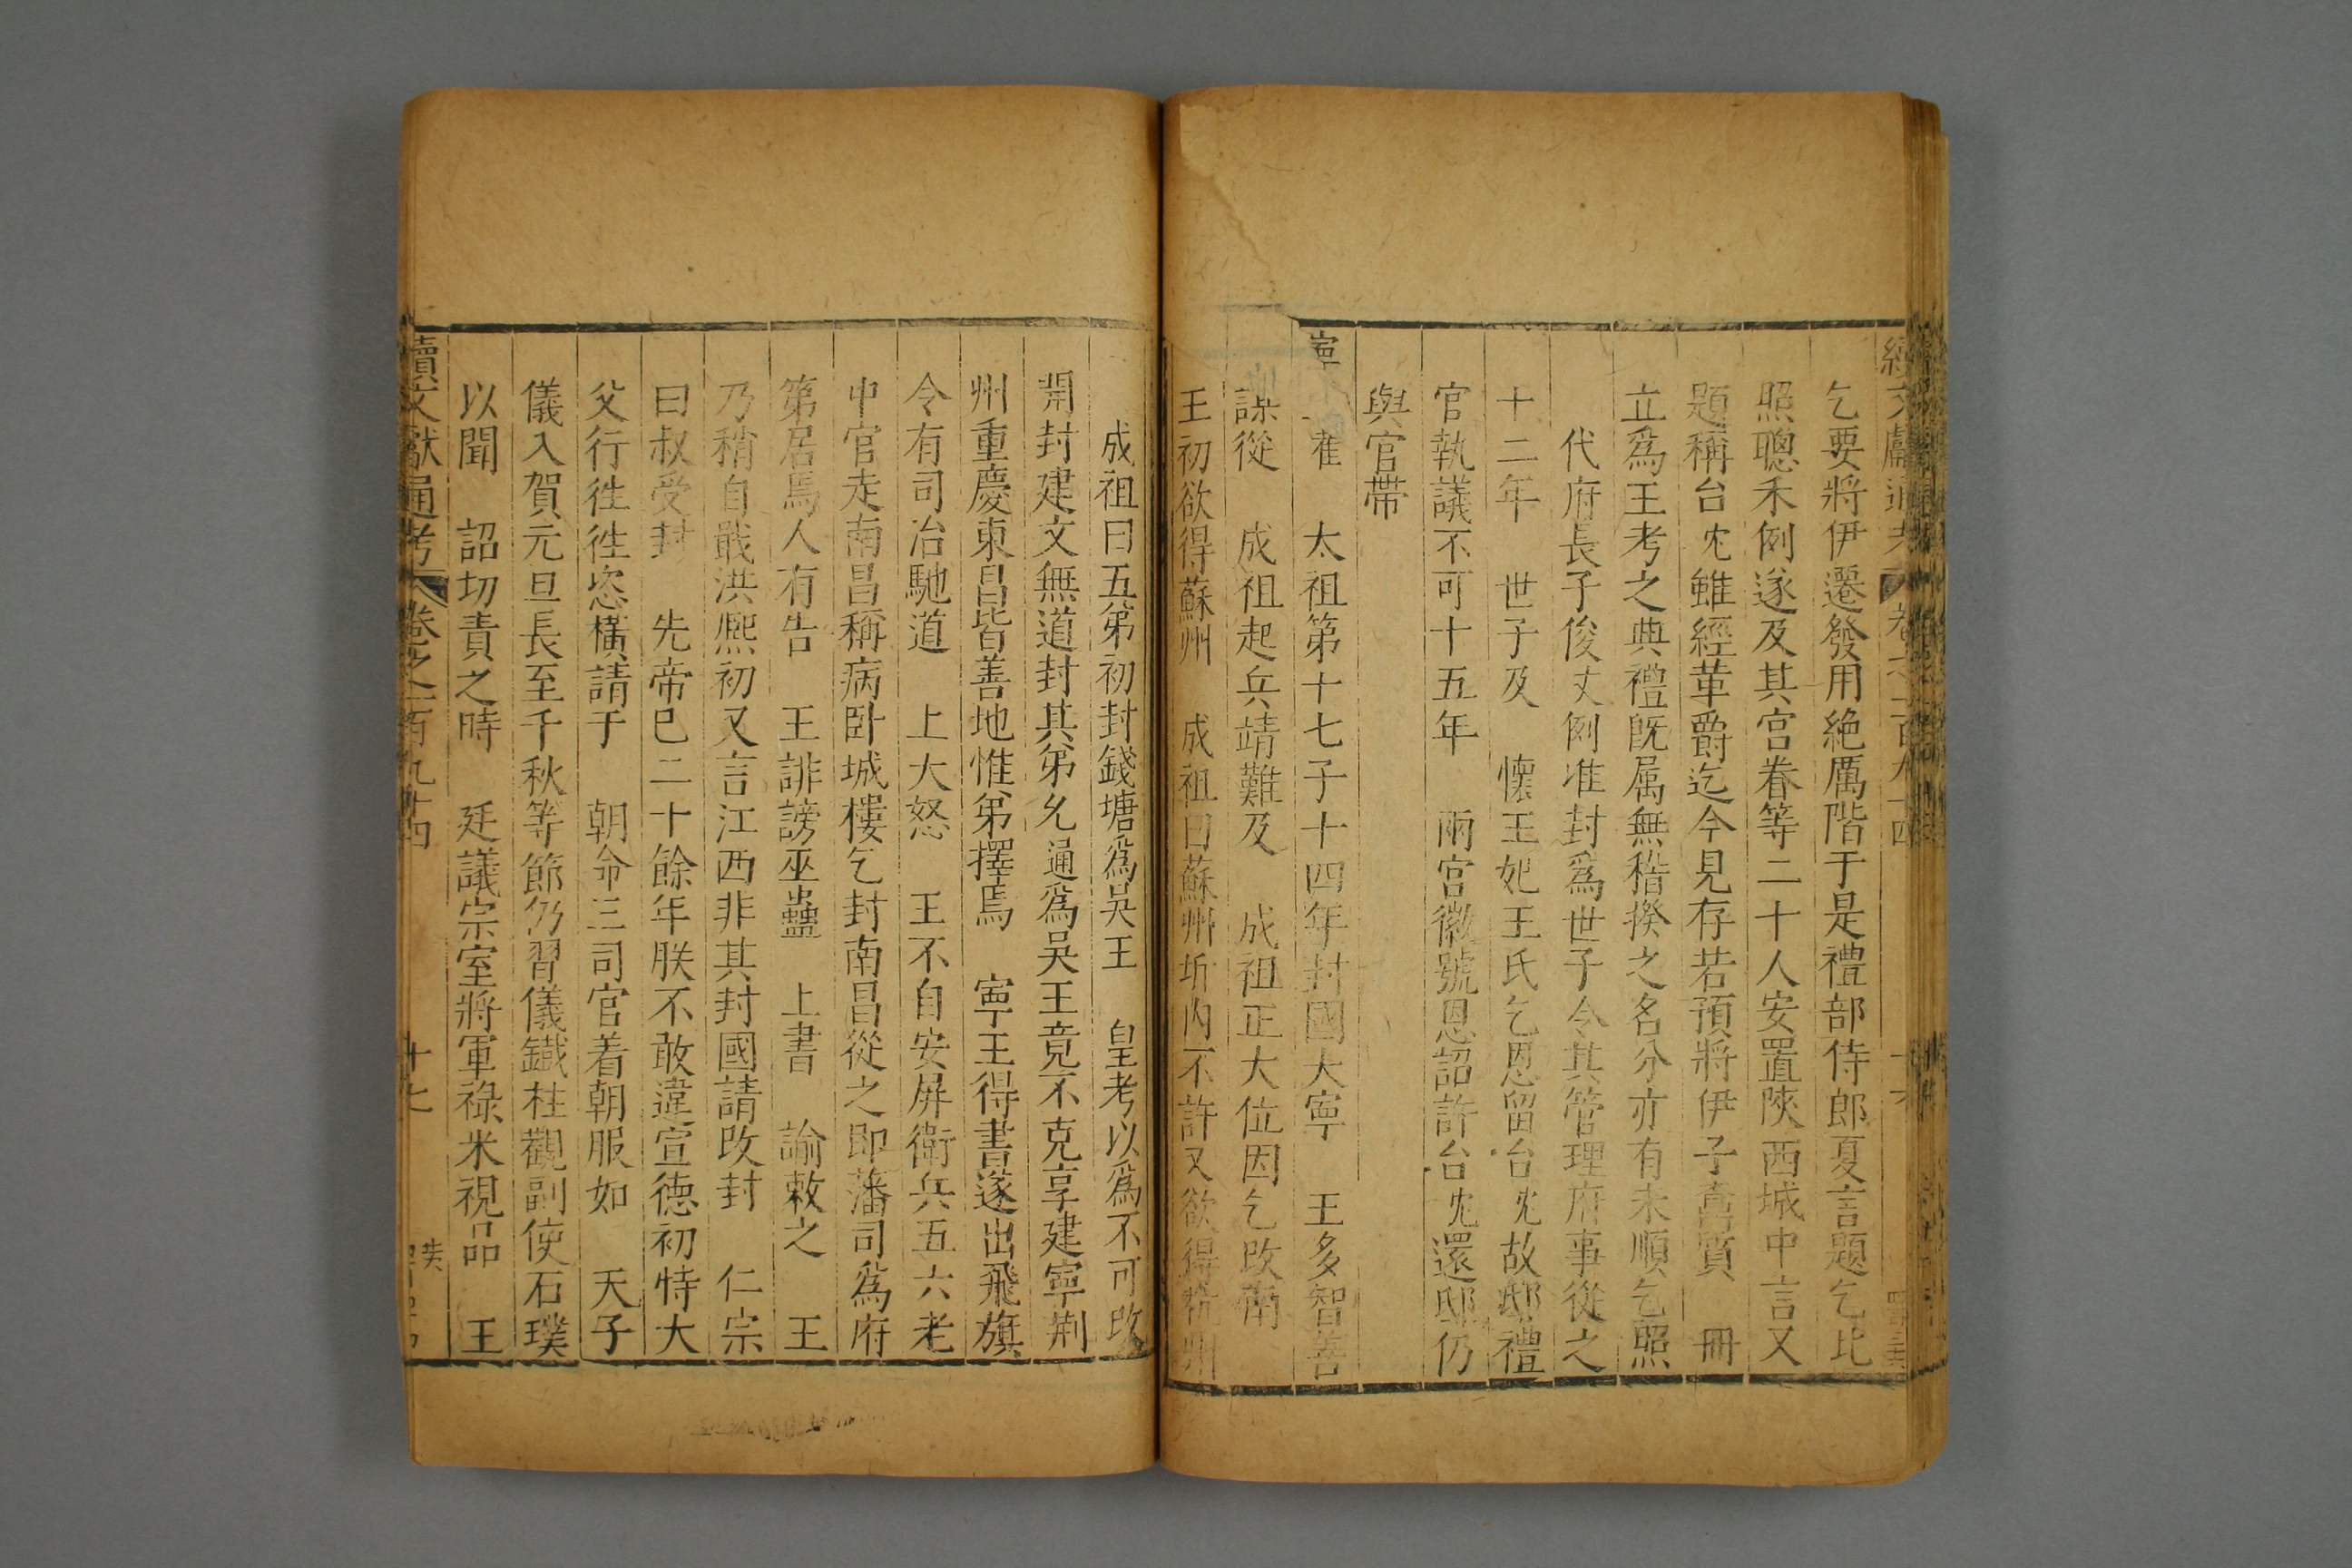 續文獻通考 卷之一百九十四 十六
乞要將伊遷發用絶厲階于是禮部侍郎夏言題乞比
照聰禾例遂及其宫眷等二十人安置陜西城中言又
題稱台㳁雖經革爵迄今見存若預將伊子充質 冊
立爲王考之典禮既属無稽揆之名分亦有未順乞照
代府長子俊丈例准封爲世子令其管理府事從之
十二年 世子及 懷王妃王氏乞恩留台㳁故邸禮
官執議不可十五年 兩宫徽號恩詔許台㳁還邸仍
與官帶
寍 太祖第十七子十四年封國大寧 王多智善
謀從 成祖起兵靖難及 成祖正大位因乞改南
王初欲得蘇州 成祖曰蘇州圻内不許又欲得杭州
成祖曰五弟初封錢塘爲吴王 皇考以爲不可改
開封建文無道封其弟允通爲吴王竟不克享建寧荆
州重慶東昌皆善地惟弟擇焉 寧王得書遂出飛旗
令有司治馳道 上大怒 王不自安屏衛兵五六老
中官走南昌稱病卧城樓乞封南昌從之即藩司爲府
第居焉人有告 王誹謗巫蠱 上書 諭敕之 王
乃稍自戢洪熙初又言江西非其封國請改封 仁宗
曰叔受封 先帝已二十餘年朕不敢違宣徳初恃大
父行徃徃恣橫請于 朝命三司官着朝服如 天子
儀入賀元旦長至千秋等節仍習儀鐵柱觀副使石璞
以聞 詔切責之時 廷議宗室將軍祿米視品 王
續文獻通考 卷之一百九十四 十七